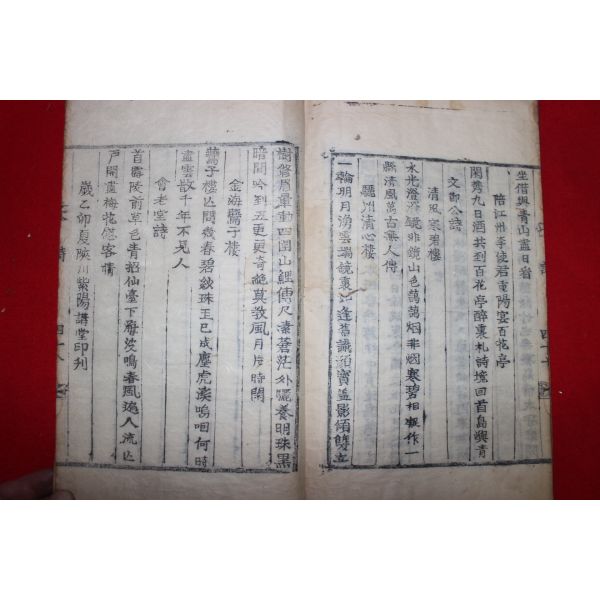 坐借與青山盡日看
陪江州李使君重陽宴百花亭
閑携九日酒共到百花亭醉裏札詩境回首島嶼青
文御公詩
清風寒碧樓
水光澄澄鏡非鏡山色藹藹烟非烟寒碧相凝作一
縣清風萬古無人傳
驪州清心樓
一輪明月湧雲端鏡裏 逢舊識 寶盖影傾雙立
樹 眉暈動四圍山 傳尺 蒼茫外 養明珠黑
暗間吟到五更更奇絶莫教風片片時閑
金海鷰子樓
鷰子樓亡問幾春碧紗珠玉已成塵虎溪嗚咽何時
盡雲散千年不見人
會老堂詩
首露陵前草色青招仙臺下 波鳴春風 人流亡
戶開盡梅花慰客情
歲乙卯夏陜川紫陽講堂印刊